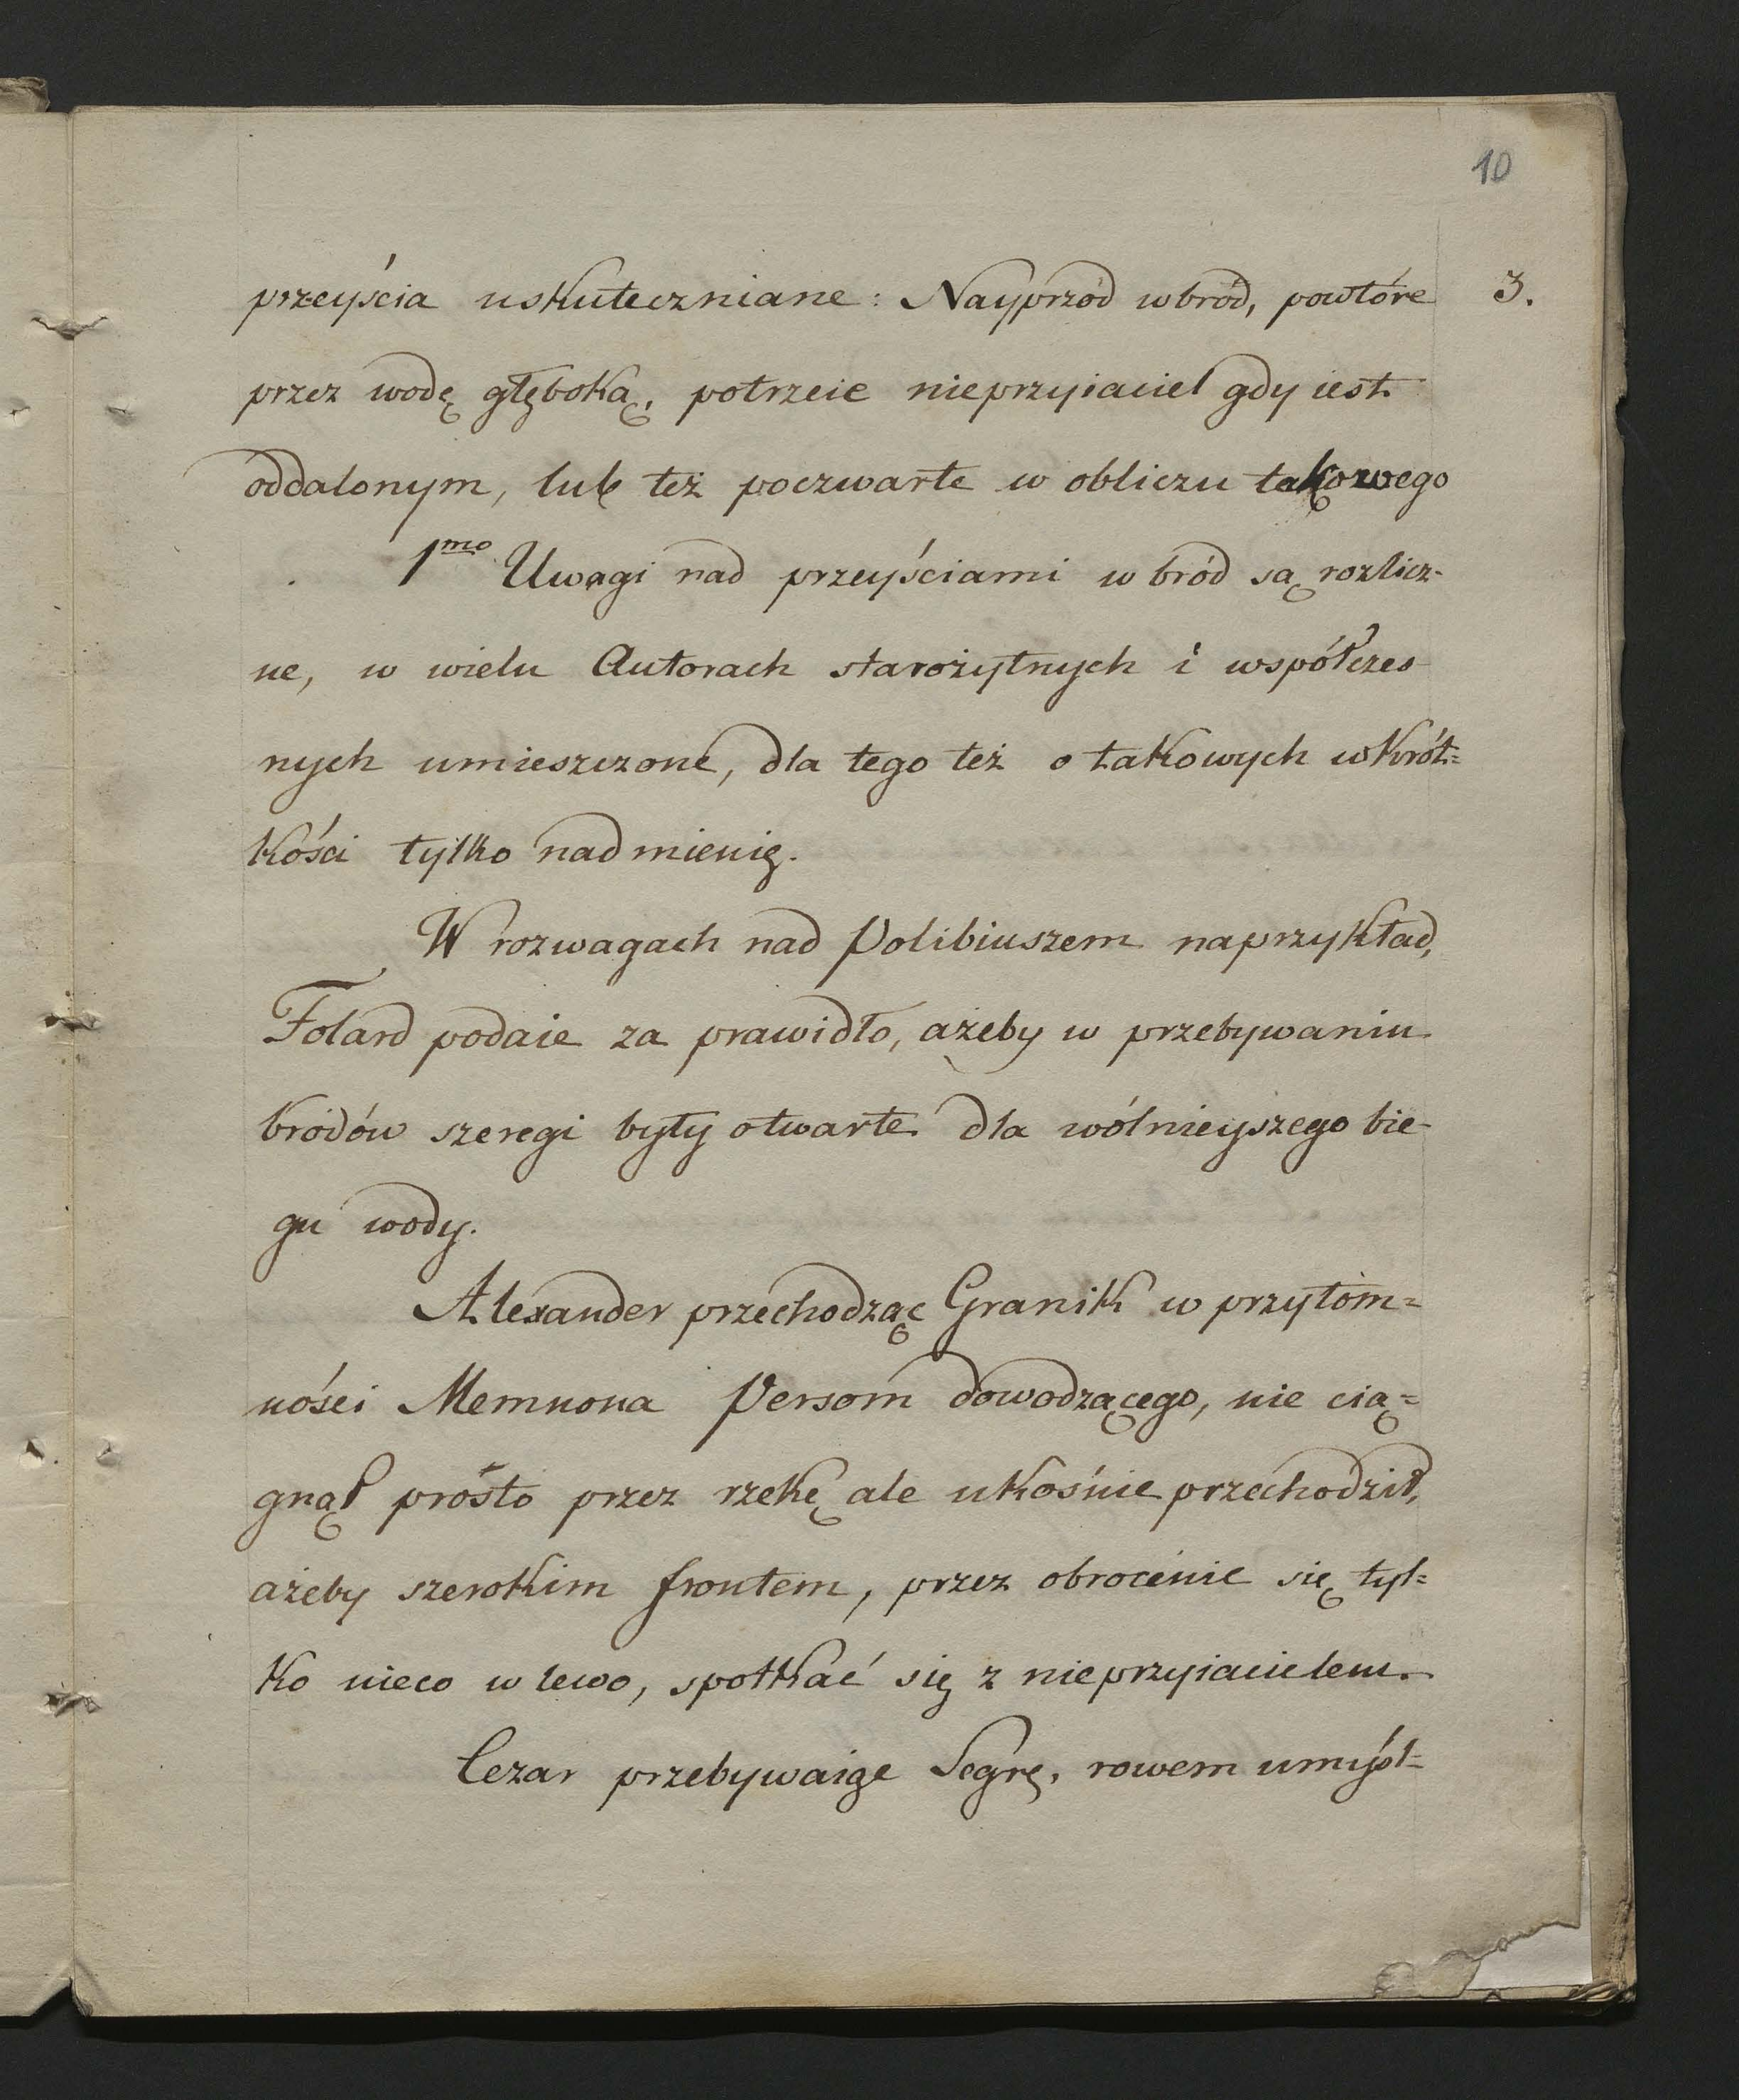 10
przeyścia uskuteczniane: Nayprzód wbród, powtóre 3.
przez wodę głęboką, potrzeie nieprzyiaciel gdy iest
oddalonym, lub też poczwarte w obliczu takowego
1mo Uwagi nad przeyściami w bród są rozlicz-
ne, w wielu Autorach starożytnych i współczes-
nych umieszczone, dla tego też o takowych wkrót=
kości tylko nadmienię.
W rozwagach nad Polibiuszem naprzykład,
Folard podaie za prawidło, ażeby w przebywaniu
brodów szeregi były otwarte dla wólnieyszego bie-
gu wody.
Alexander przechodząc Granik w przytom=
ności Memnona Persom dowodzącego, nie cią=
gnął prósto przez rzekę ale ukośnie przechodził,
ażeby szerokim frontem, przez obrocenie się tyl=
ko nieco w lewo, spotkać się z nieprzyiacielem.
Cezar przebywaiąc Segrę, rowem umyśl=